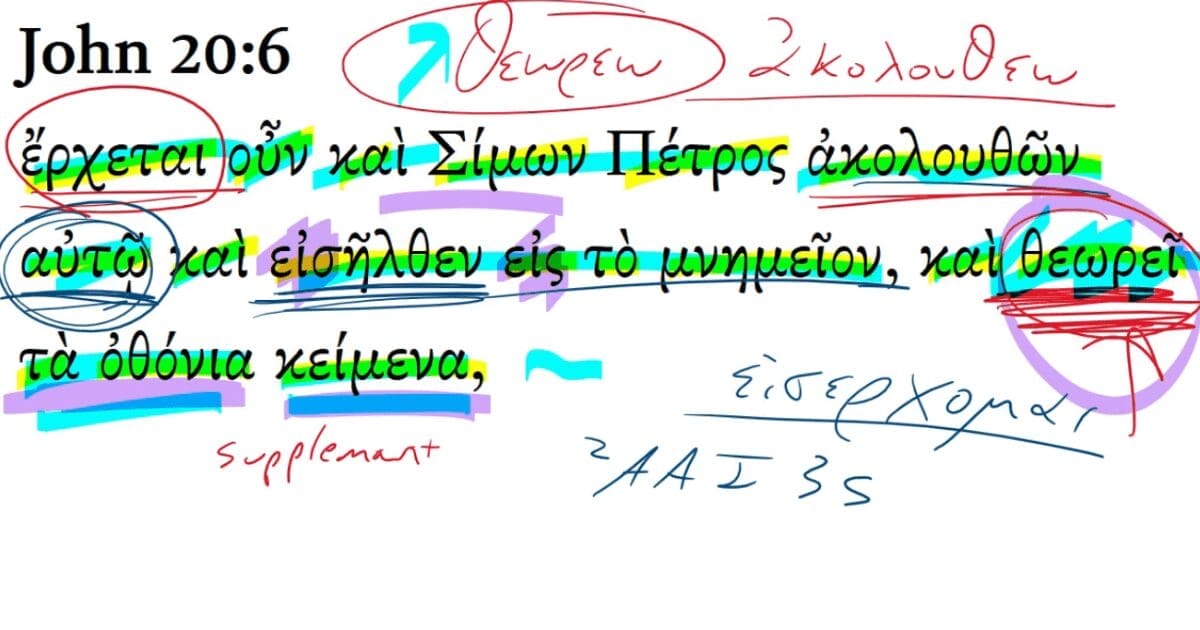 John 20:6
θεωρεω ακολουθεω
ἔρχεται οὖν καὶ Σίμων Πέτρος ἀκολουθῶν
αὐτῷ καὶ εἰσῆλθεν εἰς τὸ μνημεῖον, καὶ θεωρεῖ
τὰ ὀθόνια κείμενα,
εἰσερχομαι
supplemant
2AAI3s